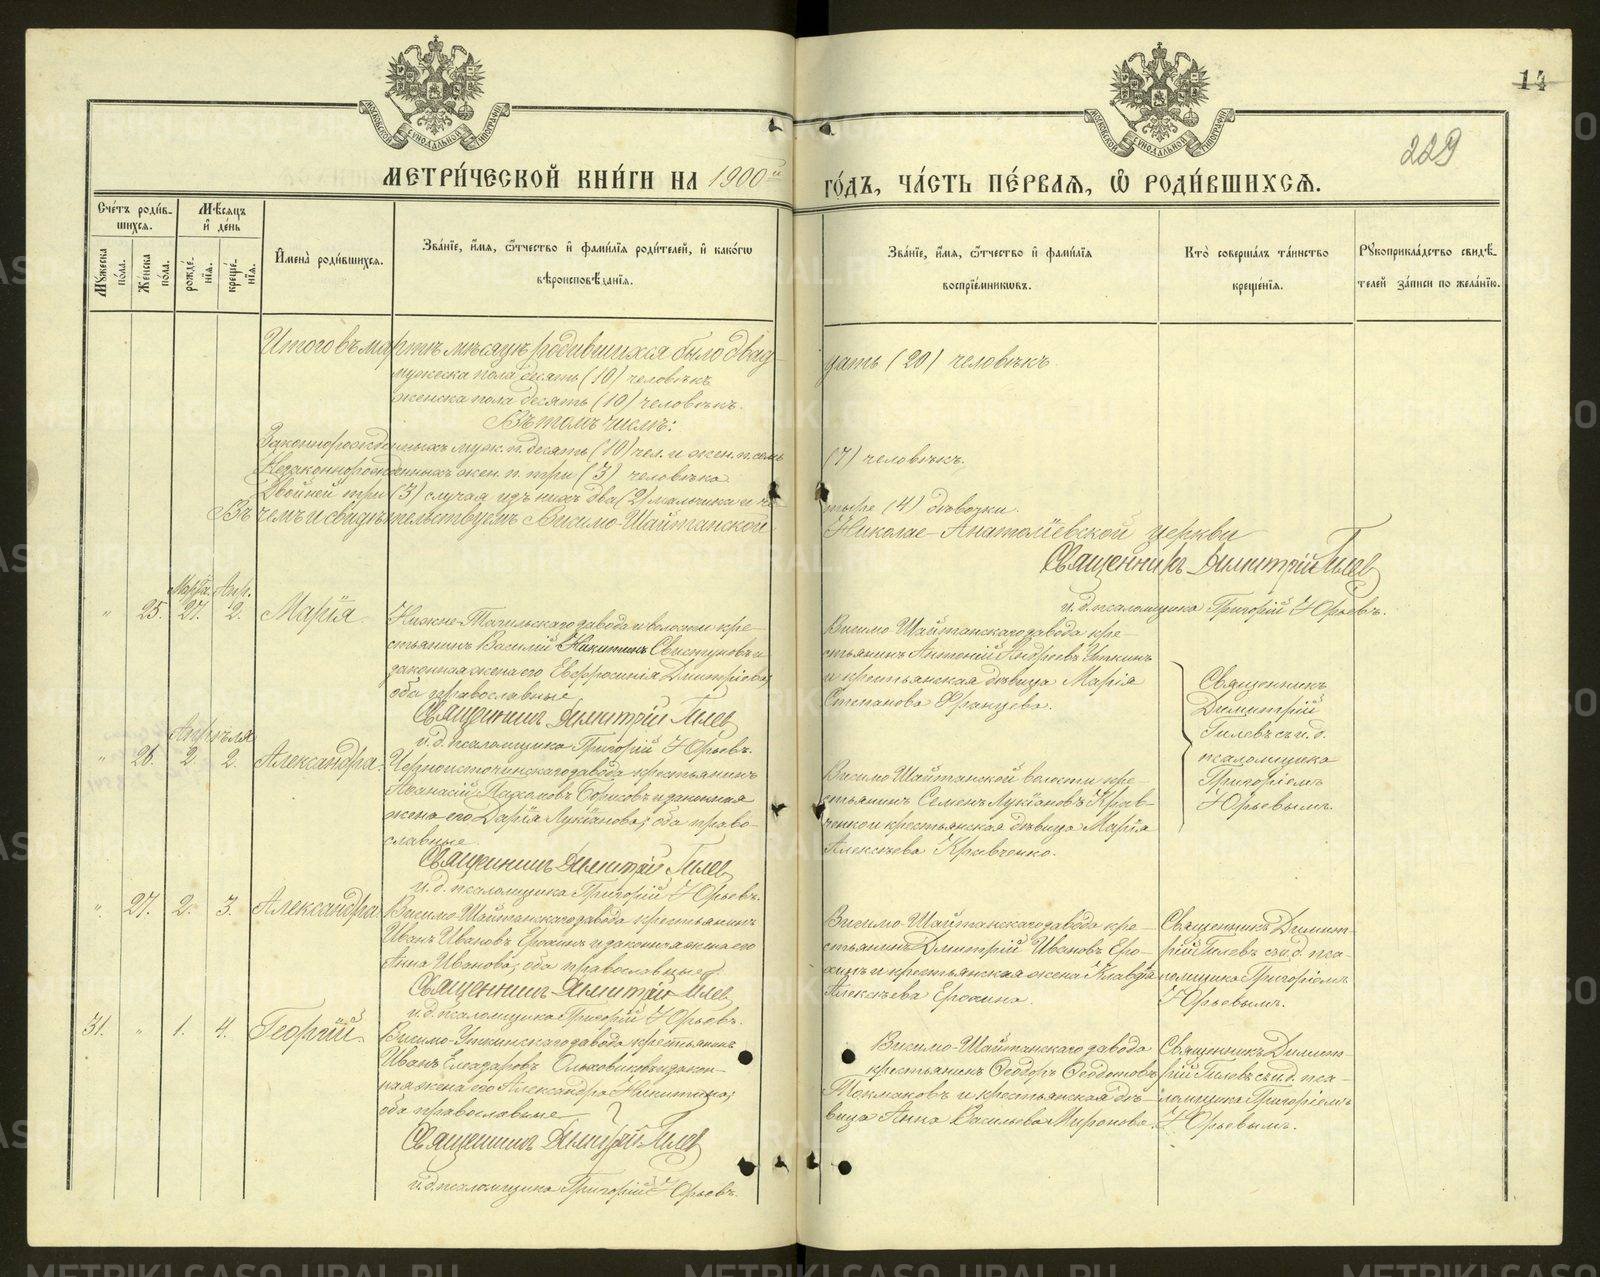 14
229
МОСКОВСКОЙ СѴНОДАЛЬНОЙ ТИПОГРАФІИ
МОСКОВСКОЙ СѴНОДАЛЬНОЙ ТИПОГРАФІИ
МЕТРИ́ЧЕСКОЙ КНИ́ГИ НА 1900й
ГО́ДЪ, ЧА́СТЬ ПЕ́РВАѦ, Ѡ РОДИ́ВШИХСѦ.
Сче́тъ роди́в-
шихся.
Мѣ́сяцъ
и де́нь
Мꙋ́жеска по́ла.
Же́нска по́ла.
рожде́-нїя.
креще́-нїя.
Имена̀ роди́вшихся.
Зва́нїе, и́мя, ѻ́тчество и фами́лїя роди́телей, и како́гѡ
вѣроисповѣ́данїя.
Зва́нїе, и́мя, ѻ́тчество и фами́лїя
воспрїе́мникѡвъ.
Кто̀ соверша́лъ та́инство
креще́нїя.
Рꙋкоприкла́дство свидѣ́-
телей за́писи по жела́нїю.
Итого въ мартѣ мѣсяцѣ родившихся было двад-
цать (20) человѣкъ
мужеска пола десять (10) человѣкъ
женска пола десять (10) человѣкъ.
Въ томъ числѣ:
Законнорожденныхъ муж. п. десять (10) чел. и жен. п. семь
(7) человѣкъ.
Незаконнорожденныхъ жен. п. три (3) человѣка
Двойней три (3) случая изъ нихъ два (2) мальчика и че-
тыре (4) дѣвочки.
Въ чемъ и свидѣтельствуемъ Висимо-Шайтанской
Николае-Анатоліевской церкви
Священникъ Димитрій Гилев
и. д. псаломщика Григорій Юрьевъ.
Марта. Апр.
" 25. 27. 2. Марія.
Нижне-Тагильскаго завода и волости кре-
стьянинъ Василій Никитинъ Свистуновъ и
законная жена его Евфросинія Дмитріева;
оба православные.
Священникъ Димитрій Гилев
и. д. псаломщика Григорій Юрьевъ.
Висимо Шайтанскаго завода кре-
стьянинъ Антоній Андреевъ Уткинъ
и крестьянская дѣвица Марія
Степанова Французова.
Священникъ
Димитрій
Гилевъ съ и. д.
псаломщика
Григоріемъ
Юрьевымъ.
Апрѣля
" 26. 2. 2. Александра.
Черноисточинскаго завода крестьянинъ
Афанасій Пахомовъ Борисовъ и законная
жена его Дарія Лукіанова; оба право-
славные
Священникъ Димитрій Гилев
и. д. псаломщика Григорій Юрьевъ.
Висимо Шайтанской волости кре-
стьянинъ Семенъ Лукіановъ Крав-
ченко и крестьянская дѣвица Марія
Алексѣева Кравченко.
" 27. 2. 3. Александра.
Висимо-Шайтанскаго завода крестьянинъ
Иванъ Ивановъ Ерохинъ и законная жена его
Анна Иванова; оба православные.
Священникъ Димитрій Гилев
и. д. псаломщика Григорій Юрьевъ.
Висимо-Шайтанскаго завода кре-
стьянинъ Дмитрій Ивановъ Еро-
хинъ и крестьянская жена Клавдія
Алексѣева Ерохина.
Священникъ Димит-
рій Гилевъ съ и. д. пса-
ломщика Григоріемъ
Юрьевымъ.
31. " 1. 4. Георгій.
Висимо-Уткинскаго завода крестьянинъ
Иванъ Елеазаровъ Ольховиковъ и закон-
ная жена его Александра Никитина;
оба православные
Священникъ Димитрій Гилев
и. д. псаломщика Григорій Юрьевъ.
Висимо-Шайтанскаго завода
крестьянинъ Ѳеодоръ Ѳеодотовъ
Токмаковъ и крестьянская дѣ-
вица Анна Васильева Миронова.
Священникъ Димит-
рій Гилевъ съ и. д. пса-
ломщика Григоріемъ
Юрьевымъ.
METRIKI.CASO-URAL.RU